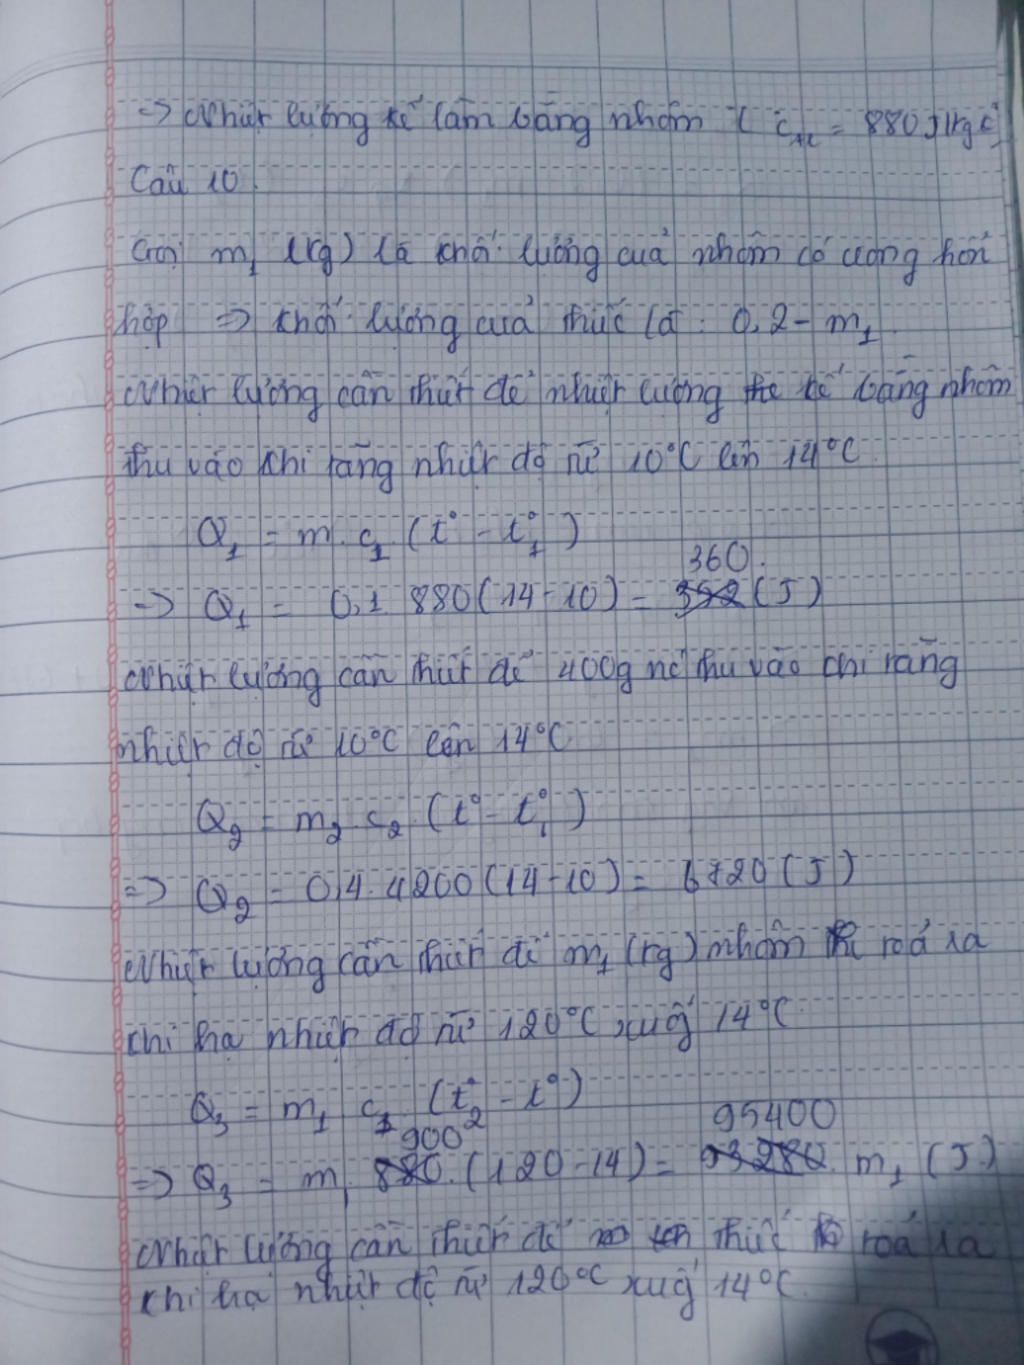 => Nhiệt lượng kế làm bằng nhôm ( C_Al = 880 J/kg.c)
Câu 10.
Gọi m₁ (kg) là khối lượng của nhôm có trong hỗn
hợp => khối lượng của thiếc là : 0,2 - m₁.
Nhiệt lượng cần thiết để nhiệt lượng kế bằng nhôm
thu vào khi tăng nhiệt độ từ 10°C lên 14°C
Q₁ = m . c₁ . (t° - t₁°)
360.
=> Q₁ = 0,1 . 880(14-10) = 352 (J)
Nhiệt lượng cần thiết để 400g nc thu vào khi tăng
nhiệt độ từ 10°C lên 14°C
Q₂ = m₂ . c₂ . (t° - t₁°)
=> Q₂ = 0,4 . 4200(14-10) = 6720 (J)
Nhiệt lượng cần thiết để m₁ (kg) nhôm toả ra
khi hạ nhiệt độ từ 120°C xuố 14°C.
Q₃ = m₁ . c₁ . (t₂° - t°)
900 95400
=> Q₃ = m₁ . 880 . (120-14) = 93280 . m₁ (J.)
Nhiệt lượng cần thiết để thiếc toả ra
khi hạ nhiệt độ từ 120°C xuố 14°C.